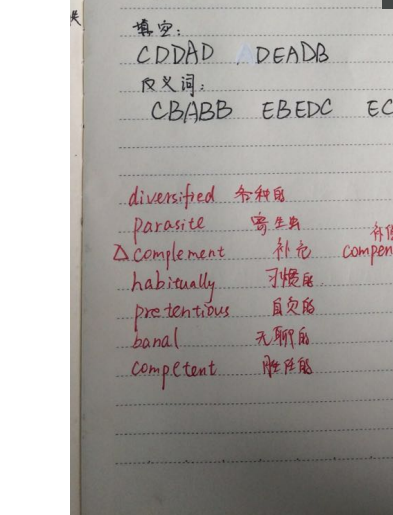 填空:
CDDAD DEADB
反义词:
CBABB EBEDC EC
diversified 各种的
parasite 寄生虫
△ complement 补充 compen
habitually 习惯的
pretentious 自负的
banal 无聊的
competent 胜任的